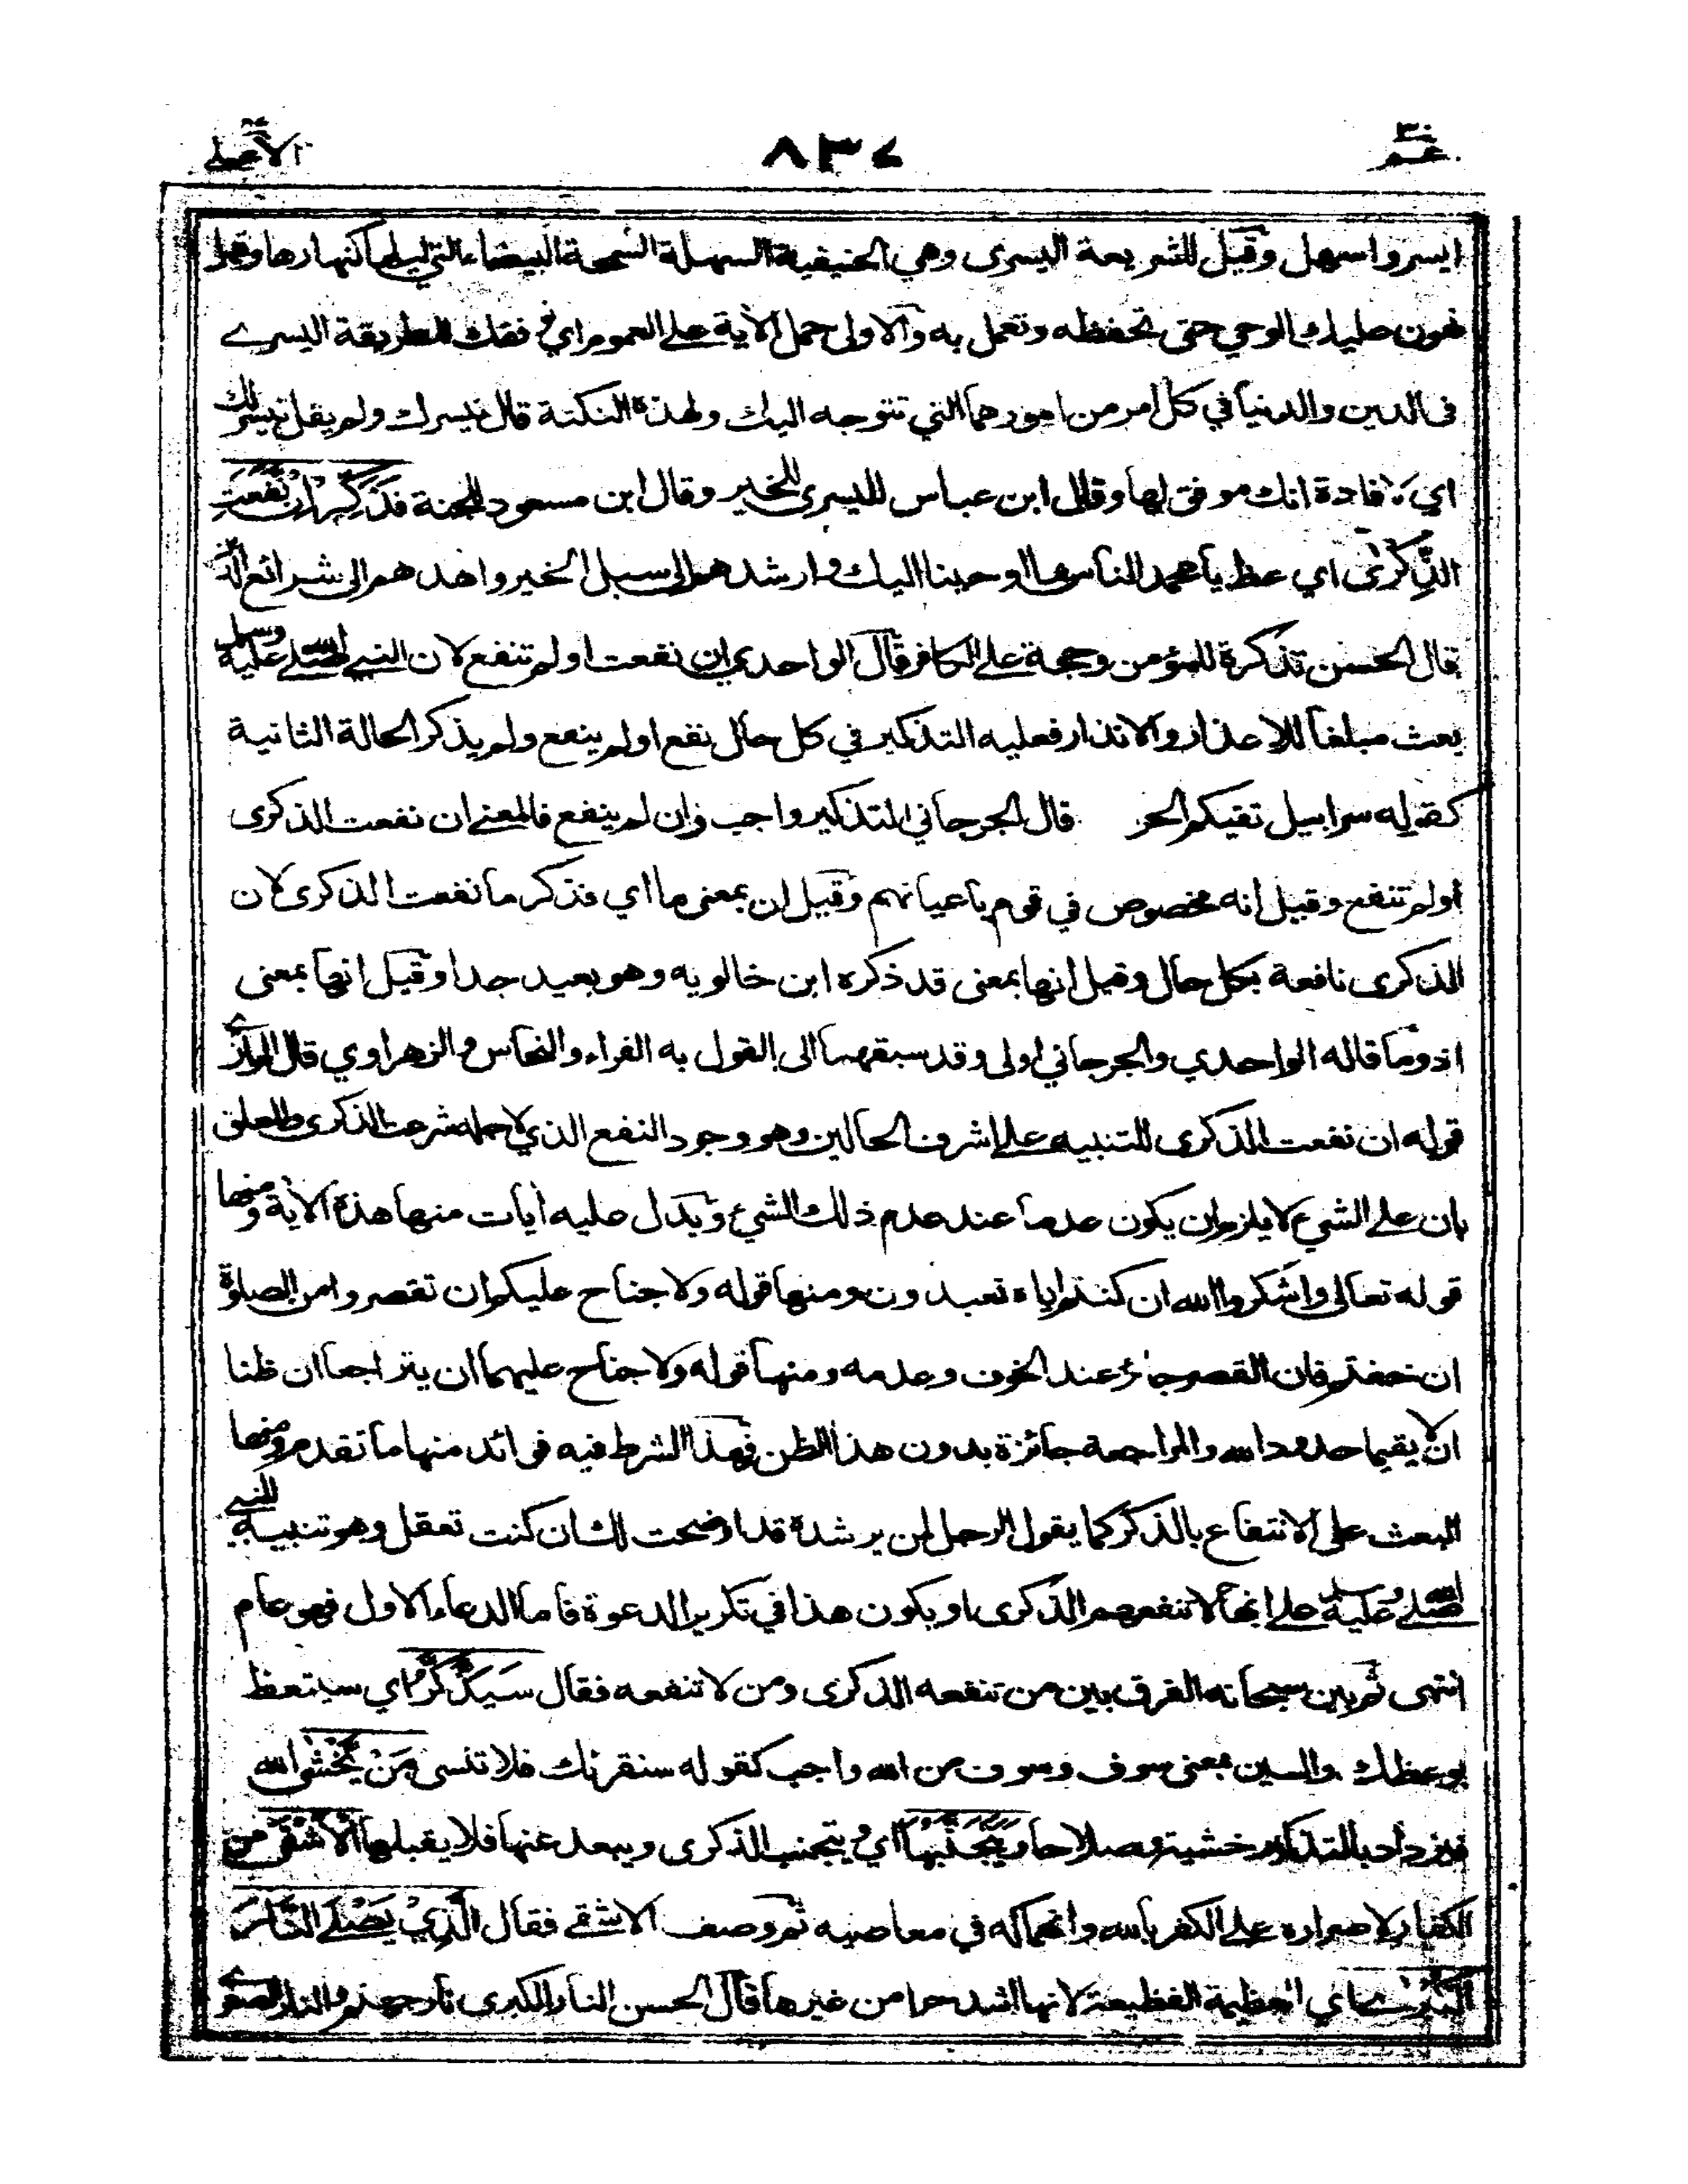 عم ٨٣٧ الاعلى
ايسر واسهل وقيل للشريعة اليسرى وهي الحنيفية السهلة السمحة البيضاء التي ليلها كنهارها وقيل
نهون عليك الوحي حتى تحفظه وتعمل به والاولى حمل الاية على العموم اي نوفقك للطريقة اليسرى
فى الدين والدنيا في كل امر من امورهما التي تتوجه اليك ولهذه النكتة قال نيسرك ولم يقل نيسر لك
اي لافادة انك موفق لها وقال ابن عباس لليسرى للخير وقال ابن مسعود للجنة فَذَكِّرْ اِنْ نَفَعَتِ
الذِّكْرٰى اي عظ يا محمد الناس بما اوحينا اليك وارشدهم الى سبل الخير واهدهم الى شرائع الدين
قال الحسن تذكرة للمؤمن وحجة على الكافر قال الواحدي ان نفعت او لم تنفع لان النبي صلى الله عليه وسلم
بعث مبلغا للاعذار والانذار فعليه التذكير في كل حال نفع او لم ينفع ولم يذكر الحالة الثانية
كقوله سرابيل تقيكم الحر قال الجرجاني التذكير واجب وان لم ينفع فالمعنى ان نفعت الذكرى
او لم تنفع وقيل انه مخصوص في قوم باعيانهم وقيل ان بمعنى ما اي فذكر ما نفعت الذكرى لان
الذكرى نافعة بكل حال وقيل انها بمعنى قد ذكره ابن خالويه وهو بعيد جدا وقيل انها بمعنى
اذ وما قاله الواحدي والجرجاني اولى وقد سبقهما الى القول به الفراء والنحاس والزهراوي قال الرازي
قوله ان نفعت الذكرى للتنبيه على اشرف الحالين وهو وجود النفع الذي لاجله شرعت الذكرى والمعلق
بان على الشيء لا يلزم ان يكون عدما عند عدم ذلك الشيء ويدل عليه أيات منها هذه الأية ومنها
قوله تعالى واشكروا الله ان كنتم اياه تعبدون ومنها قوله ولا جناح عليكم ان تقصروا من الصلوة
ان خفتم فان القصر جائز عند الخوف وعدمه ومنها قوله ولا جناح عليهما ان يتراجعا ان ظنا
ان لا يقيما حدود الله والمراجعة جائزة بدون هذا الظن فهذا الشرط فيه فوائد منها ما تقدم ومنها
البعث على الانتفاع بالذكر كما يقول الرجل لمن يرشده قد اوضحت لك ان كنت تعقل وهو تنبيه للنبي
صلى الله عليه وسلم على انها لا تنفعهم الذكرى او يكون هذا في تكرير الدعوة فاما الدعاء الاول فهو عام
انتهى ثم بين سبحانه الفرق بين من تنفعه الذكرى ومن لا تنفعه فقال سَيَذَّكَّرُ اي سيتعظ
بوعظك والسين بمعنى سوف وسوف من الله واجب كقوله سنقرئك فلا تنسى مَنْ يَّخْشٰى الله
فيزداد بالتذكير خشية وصلاحا وَيَتَجَنَّبُهَا اي ويتجنب الذكرى ويبعد عنها فلا يقبلها الْاَشْقَى من
الكفار لاصراره على الكفر بالله وانهماكه في معاصيه ثم وصف الاشقى فقال الَّذِيْ يَصْلَى النَّارَ
الْكُبْرٰى اي العظيمة الفظيعة لانها اشد حرا من غيرها قال الحسن النار الكبرى نار جهنم والنار الصغرى